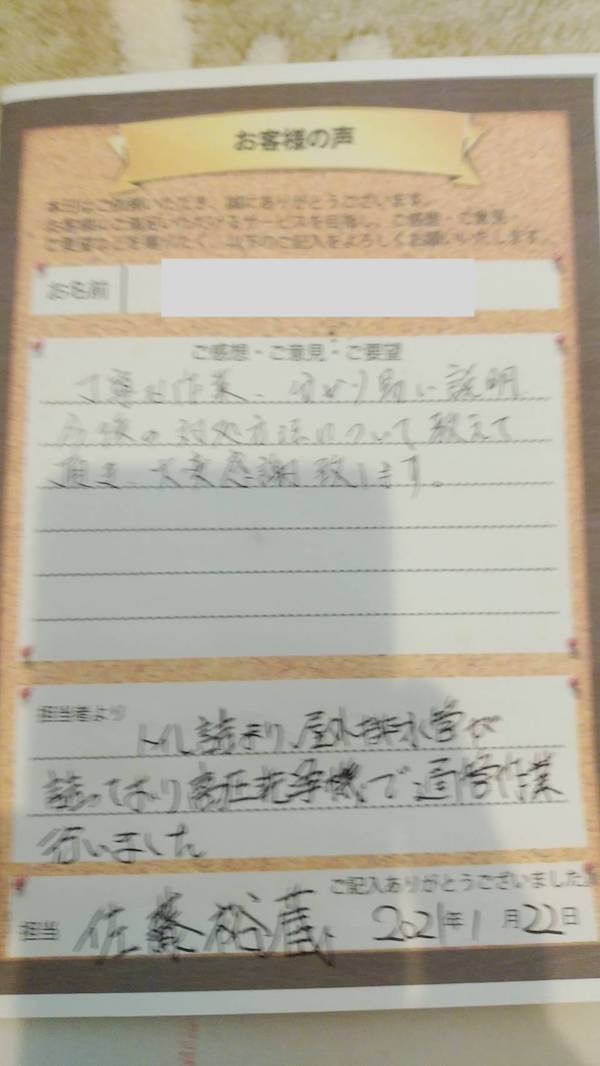 お客様の声
本日はご依頼いただき、誠にありがとうございます。
お客様にご満足いただけるサービスを目指し、ご感想・ご意見・
ご要望などを賜りたく、以下のご記入をよろしくお願いいたします。
お名前
ご感想・ご意見・ご要望
丁寧な作業、分かり易い説明
今後の対処方法について教えて
頂き、大変感謝致します。
担当者より
トイレ詰まり、屋外排水管が
詰っており高圧洗浄機で通管作業
行いました
ご記入ありがとうございました。
担当 佐藤裕蔵 2021年1月22日